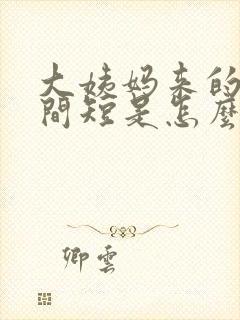 大姨妈来的
間短是怎麼
卿雲